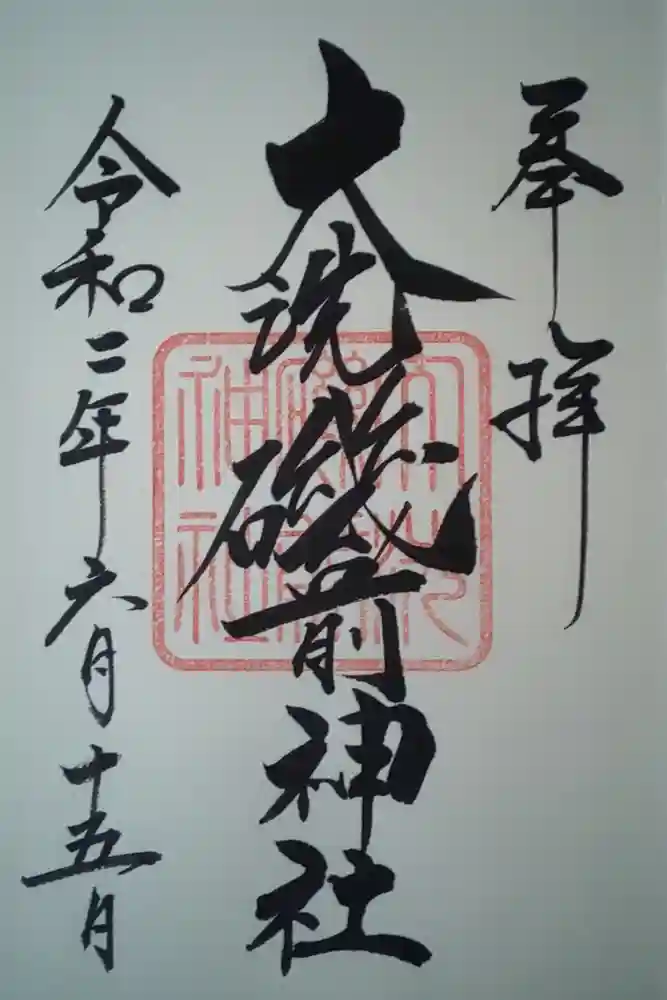 奉拝
大洗磯前神社
大洗磯前神社
令和二年六月十五日